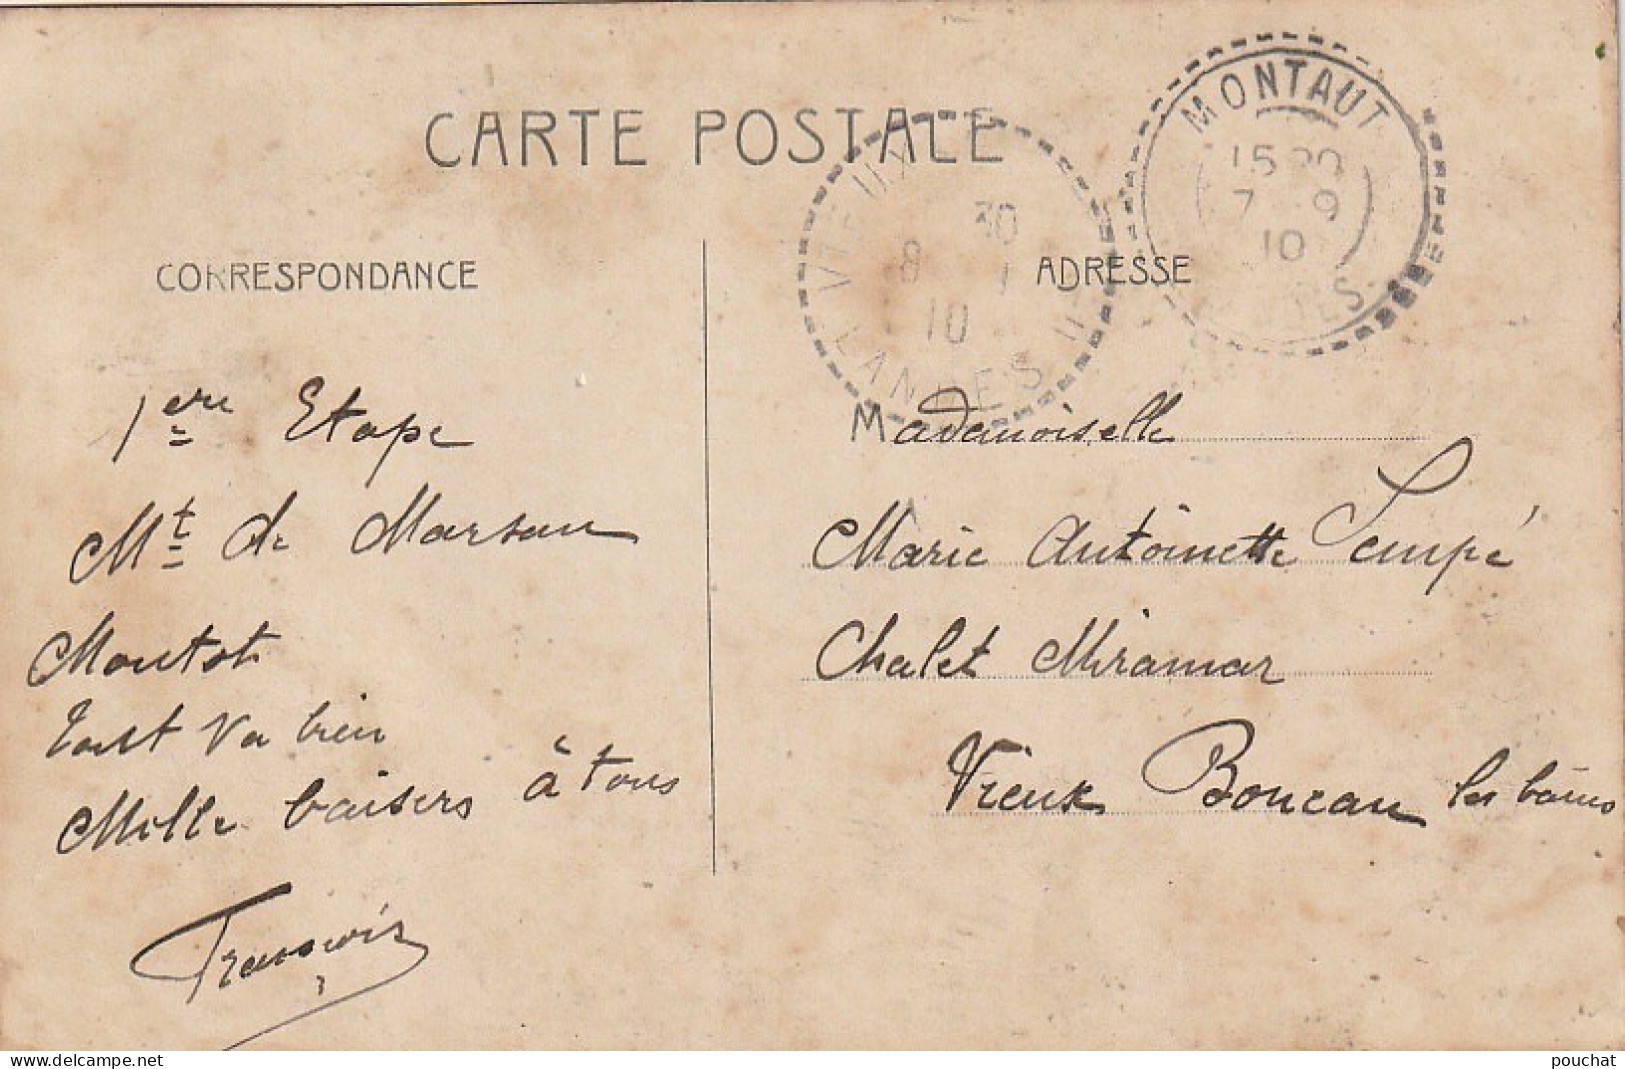 CARTE POSTALE
MONTAUT
15 30
7 9
10
VIEUX
8 30
10
LANDES
CORRESPONDANCE
ADRESSE
1ere Etape
Mt de Marsan
Montaut
Tout va bien
Mille baisers à tous
François
Mademoiselle
Marie Antoinette Lempé
Chalet Miramar
Vieux Boucau les bains
www.delcampe.net
pouchat